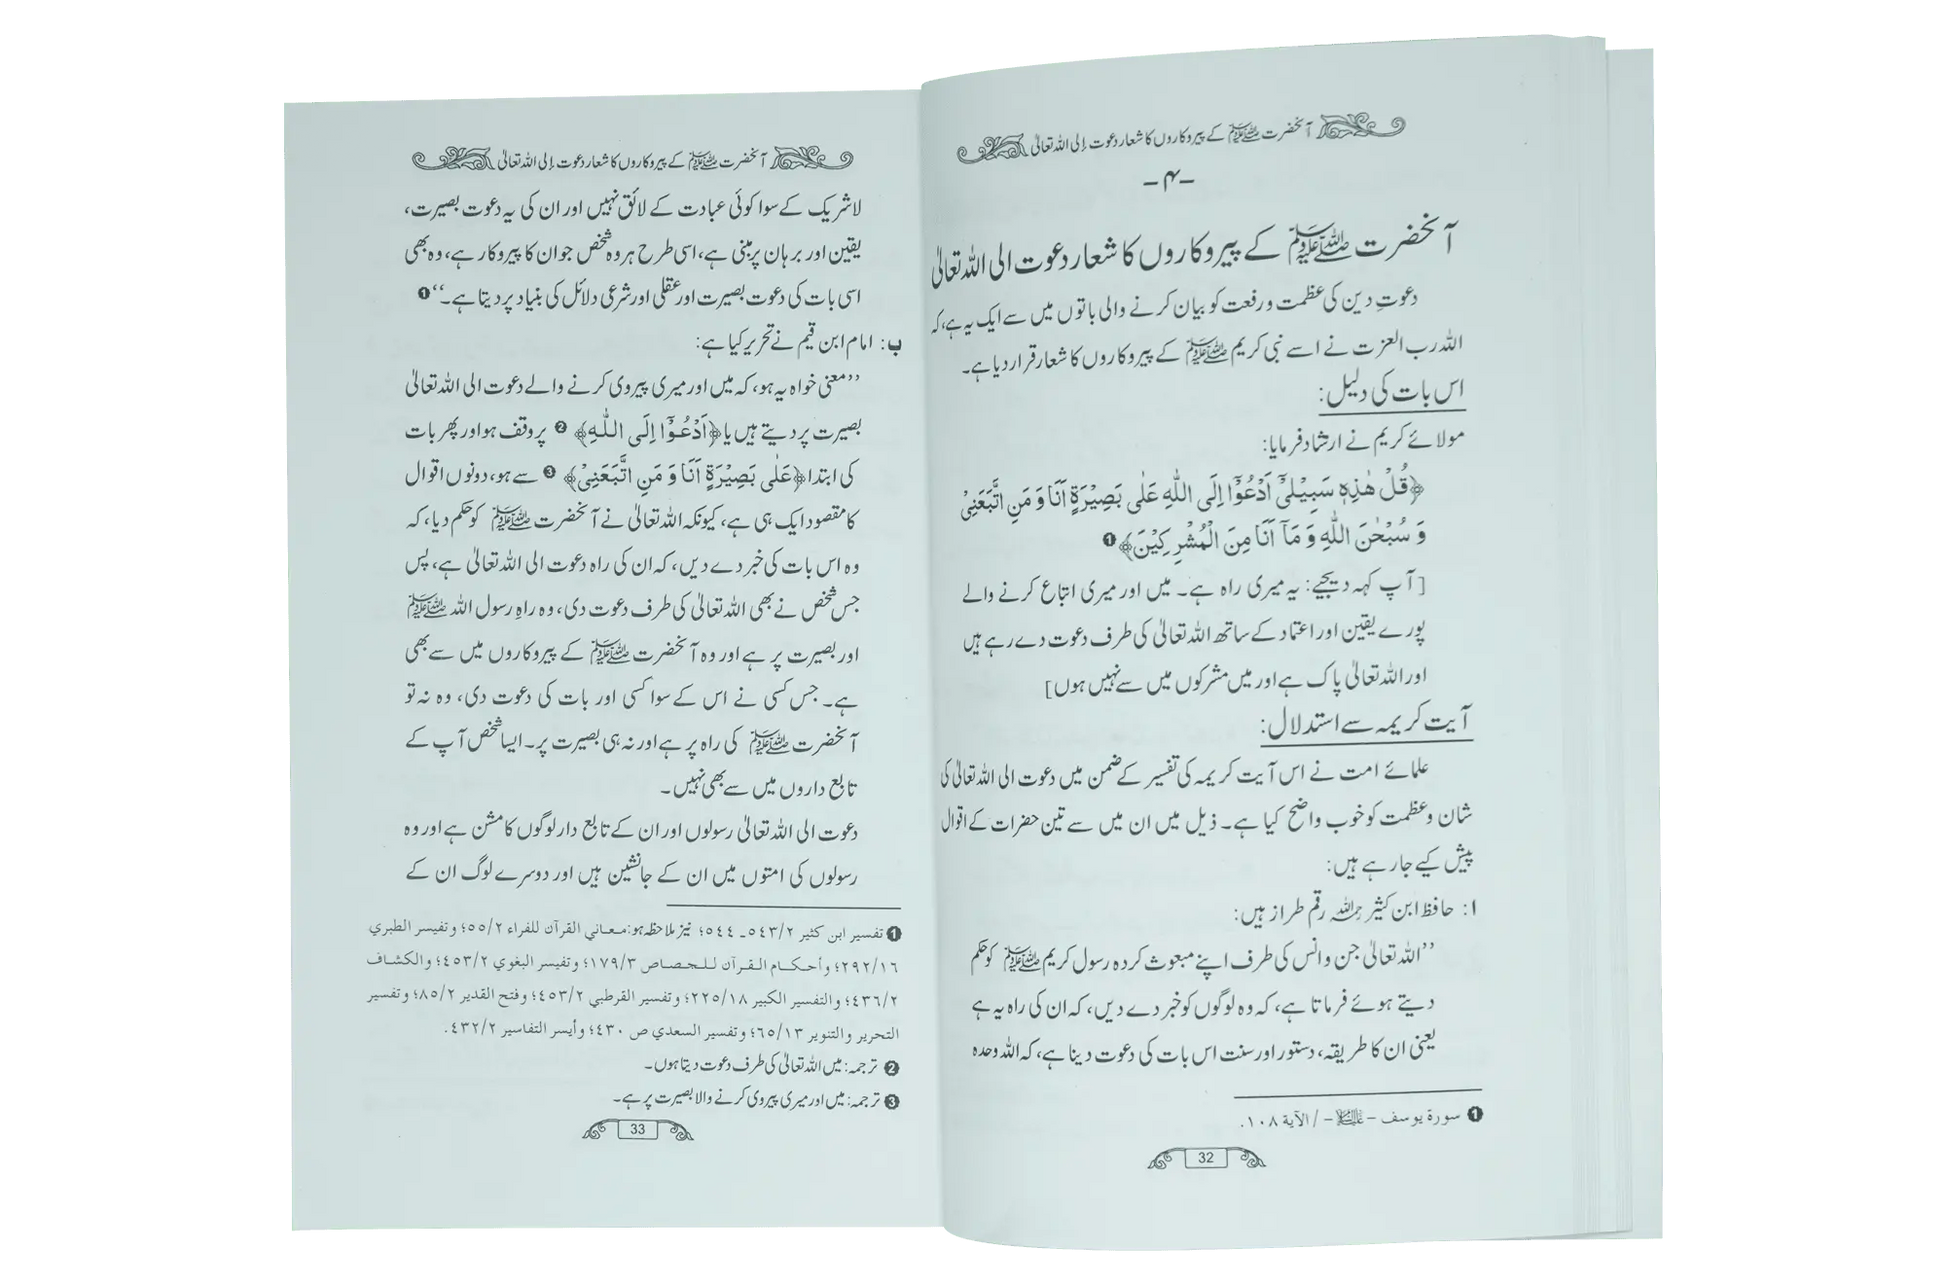 آنحضرت ﷺ کے پیروکاروں کا شعار دعوت إلی اللہ تعالیٰ
-۴-
آنحضرت ﷺ کے پیروکاروں کا شعار دعوت الی اللہ تعالیٰ
دعوتِ دین کی عظمت و رفعت کو بیان کرنے والی باتوں میں سے ایک یہ ہے، کہ
اللہ رب العزت نے اسے نبی کریم ﷺ کے پیروکاروں کا شعار قرار دیا ہے۔
اس بات کی دلیل:
مولائے کریم نے ارشاد فرمایا:
﴿قُلْ هٰذِهٖ سَبِيْلِيْٓ اَدْعُوْٓا اِلَى اللّٰهِ عَلٰى بَصِيْرَةٍ اَنَا وَ مَنِ اتَّبَعَنِيْ
وَ سُبْحٰنَ اللّٰهِ وَ مَآ اَنَا مِنَ الْمُشْرِكِيْنَ﴾❶
[آپ کہہ دیجیے: یہ میری راہ ہے۔ میں اور میری اتباع کرنے والے
پورے یقین اور اعتماد کے ساتھ اللہ تعالیٰ کی طرف دعوت دے رہے ہیں
اور اللہ تعالیٰ پاک ہے اور میں مشرکوں میں سے نہیں ہوں]
آیت کریمہ سے استدلال:
علمائے امت نے اس آیت کریمہ کی تفسیر کے ضمن میں دعوت الی اللہ تعالیٰ کی
شان و عظمت کو خوب واضح کیا ہے۔ ذیل میں ان میں سے تین حضرات کے اقوال
پیش کیے جا رہے ہیں:
ا: حافظ ابن کثیر رحمہ اللہ رقم طراز ہیں:
’’اللہ تعالیٰ جن و انس کی طرف اپنے مبعوث کردہ رسول کریم ﷺ کو حکم
دیتے ہوئے فرماتا ہے، کہ وہ لوگوں کو خبر دے دیں، کہ ان کی راہ یہ ہے
یعنی ان کا طریقہ، دستور اور سنت اس بات کی دعوت دینا ہے، کہ اللہ وحدہ
❶ سورة يوسف - عليه السلام - / الآية ١٠٨.
32
آنحضرت ﷺ کے پیروکاروں کا شعار دعوت إلی اللہ تعالیٰ
لاشریک کے سوا کوئی عبادت کے لائق نہیں اور ان کی یہ دعوت بصیرت،
یقین اور برہان پر مبنی ہے، اسی طرح ہر وہ شخص جو ان کا پیروکار ہے، وہ بھی
اسی بات کی دعوت بصیرت اور عقلی اور شرعی دلائل کی بنیاد پر دیتا ہے۔‘‘❶
ب: امام ابن قیم نے تحریر کیا ہے:
’’معنی خواہ یہ ہو، کہ میں اور میری پیروی کرنے والے دعوت الی اللہ تعالیٰ
بصیرت پر دیتے ہیں یا ﴿اَدْعُوْٓا اِلَى اللّٰهِ﴾ ❷ پر وقف ہو اور پھر بات
کی ابتدا ﴿عَلٰى بَصِيْرَةٍ اَنَا وَ مَنِ اتَّبَعَنِيْ﴾ ❸ سے ہو، دونوں اقوال
کا مقصود ایک ہی ہے، کیونکہ اللہ تعالیٰ نے آنحضرت ﷺ کو حکم دیا، کہ
وہ اس بات کی خبر دے دیں، کہ ان کی راہ دعوت الی اللہ تعالیٰ ہے، پس
جس شخص نے بھی اللہ تعالیٰ کی طرف دعوت دی، وہ راہِ رسول اللہ ﷺ
اور بصیرت پر ہے اور وہ آنحضرت ﷺ کے پیروکاروں میں سے بھی
ہے۔ جس کسی نے اس کے سوا کسی اور بات کی دعوت دی، وہ نہ تو
آنحضرت ﷺ کی راہ پر ہے اور نہ ہی بصیرت پر۔ ایسا شخص آپ کے
تابع داروں میں سے بھی نہیں۔
دعوت الی اللہ تعالیٰ رسولوں اور ان کے تابع دار لوگوں کا مشن ہے اور وہ
رسولوں کی امتوں میں ان کے جانشین ہیں اور دوسرے لوگ ان کے
❶ تفسير ابن كثير ٥٤٣/٢ـ ٥٤٤؛ نیز ملاحظہ ہو: معاني القرآن للفراء ٥٥/٢؛ وتفيسر الطبري
٢٩٢/١٦؛ وأحكام القرآن للجصاص ١٧٩/٣؛ وتفيسر البغوي ٤٥٣/٢؛ والكشاف
٤٣٦/٢؛ والتفسير الكبير ٢٢٥/١٨؛ وتفسير القرطبي ٤٥٣/٢؛ وفتح القدير ٨٥/٢؛ وتفسير
التحرير والتنوير ٦٥/١٣؛ وتفسير السعدي ص ٤٣٠؛ وأيسر التفاسير ٤٣٢/٢.
❷ ترجمہ: میں اللہ تعالیٰ کی طرف دعوت دیتا ہوں۔
❸ ترجمہ: میں اور میری پیروی کرنے والا بصیرت پر ہے۔
33